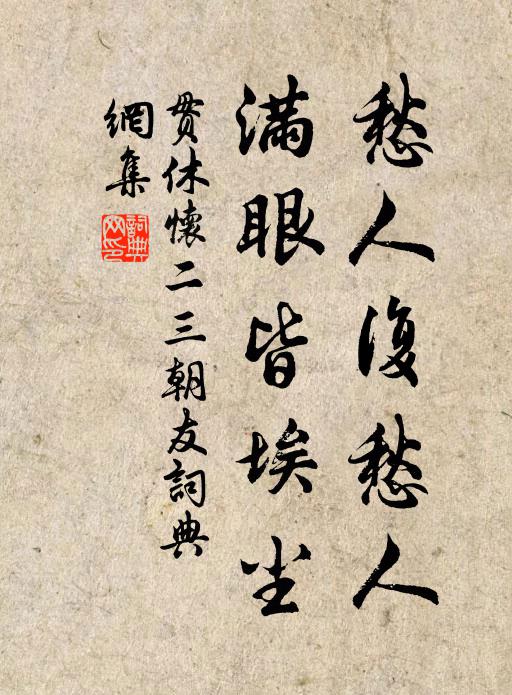 愁人復愁人
滿眼皆埃尘
貫休懷二三朝友詞典
網集
詞典
网印